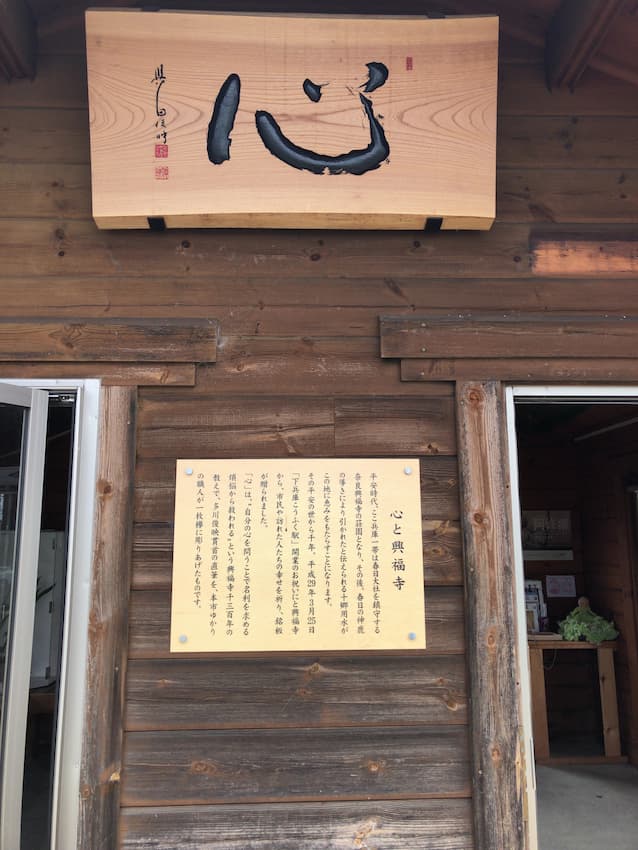 心
心と興福寺
平安時代、ここ兵庫一帯は春日大社を鎮守する
奈良興福寺の荘園となり、その後、春日の神鹿
の導きにより引かれたと伝えられる十郷用水が
この地に恵みをもたらすことになります。
その平安の世から千年。平成29年3月25日
「下兵庫こうふく駅」開業のお祝いにと興福寺
から、市民や訪れた人たちの幸せを祈り、銘板
が贈られました。
「心」は、“自分の心を問うことで名利を求める
煩悩から救われる”という興福寺千三百年の
教えで、多川俊映貫首の直筆を、本市ゆかり
の職人が一枚欅に彫りあげたものです。